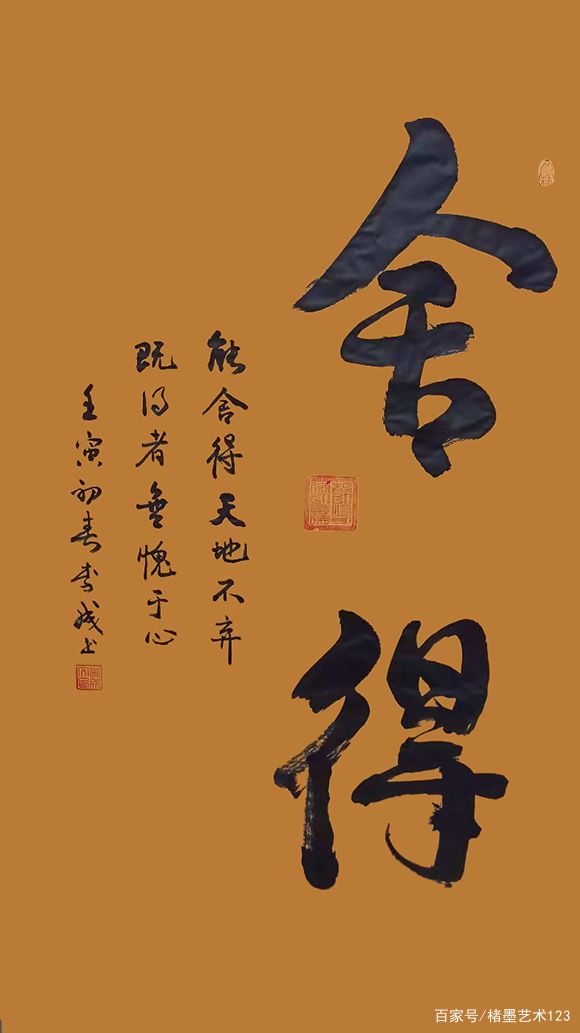 舍得
能舍得天地不弃
既得者無愧于心
壬寅初春李成书
百家号/楮墨艺术123